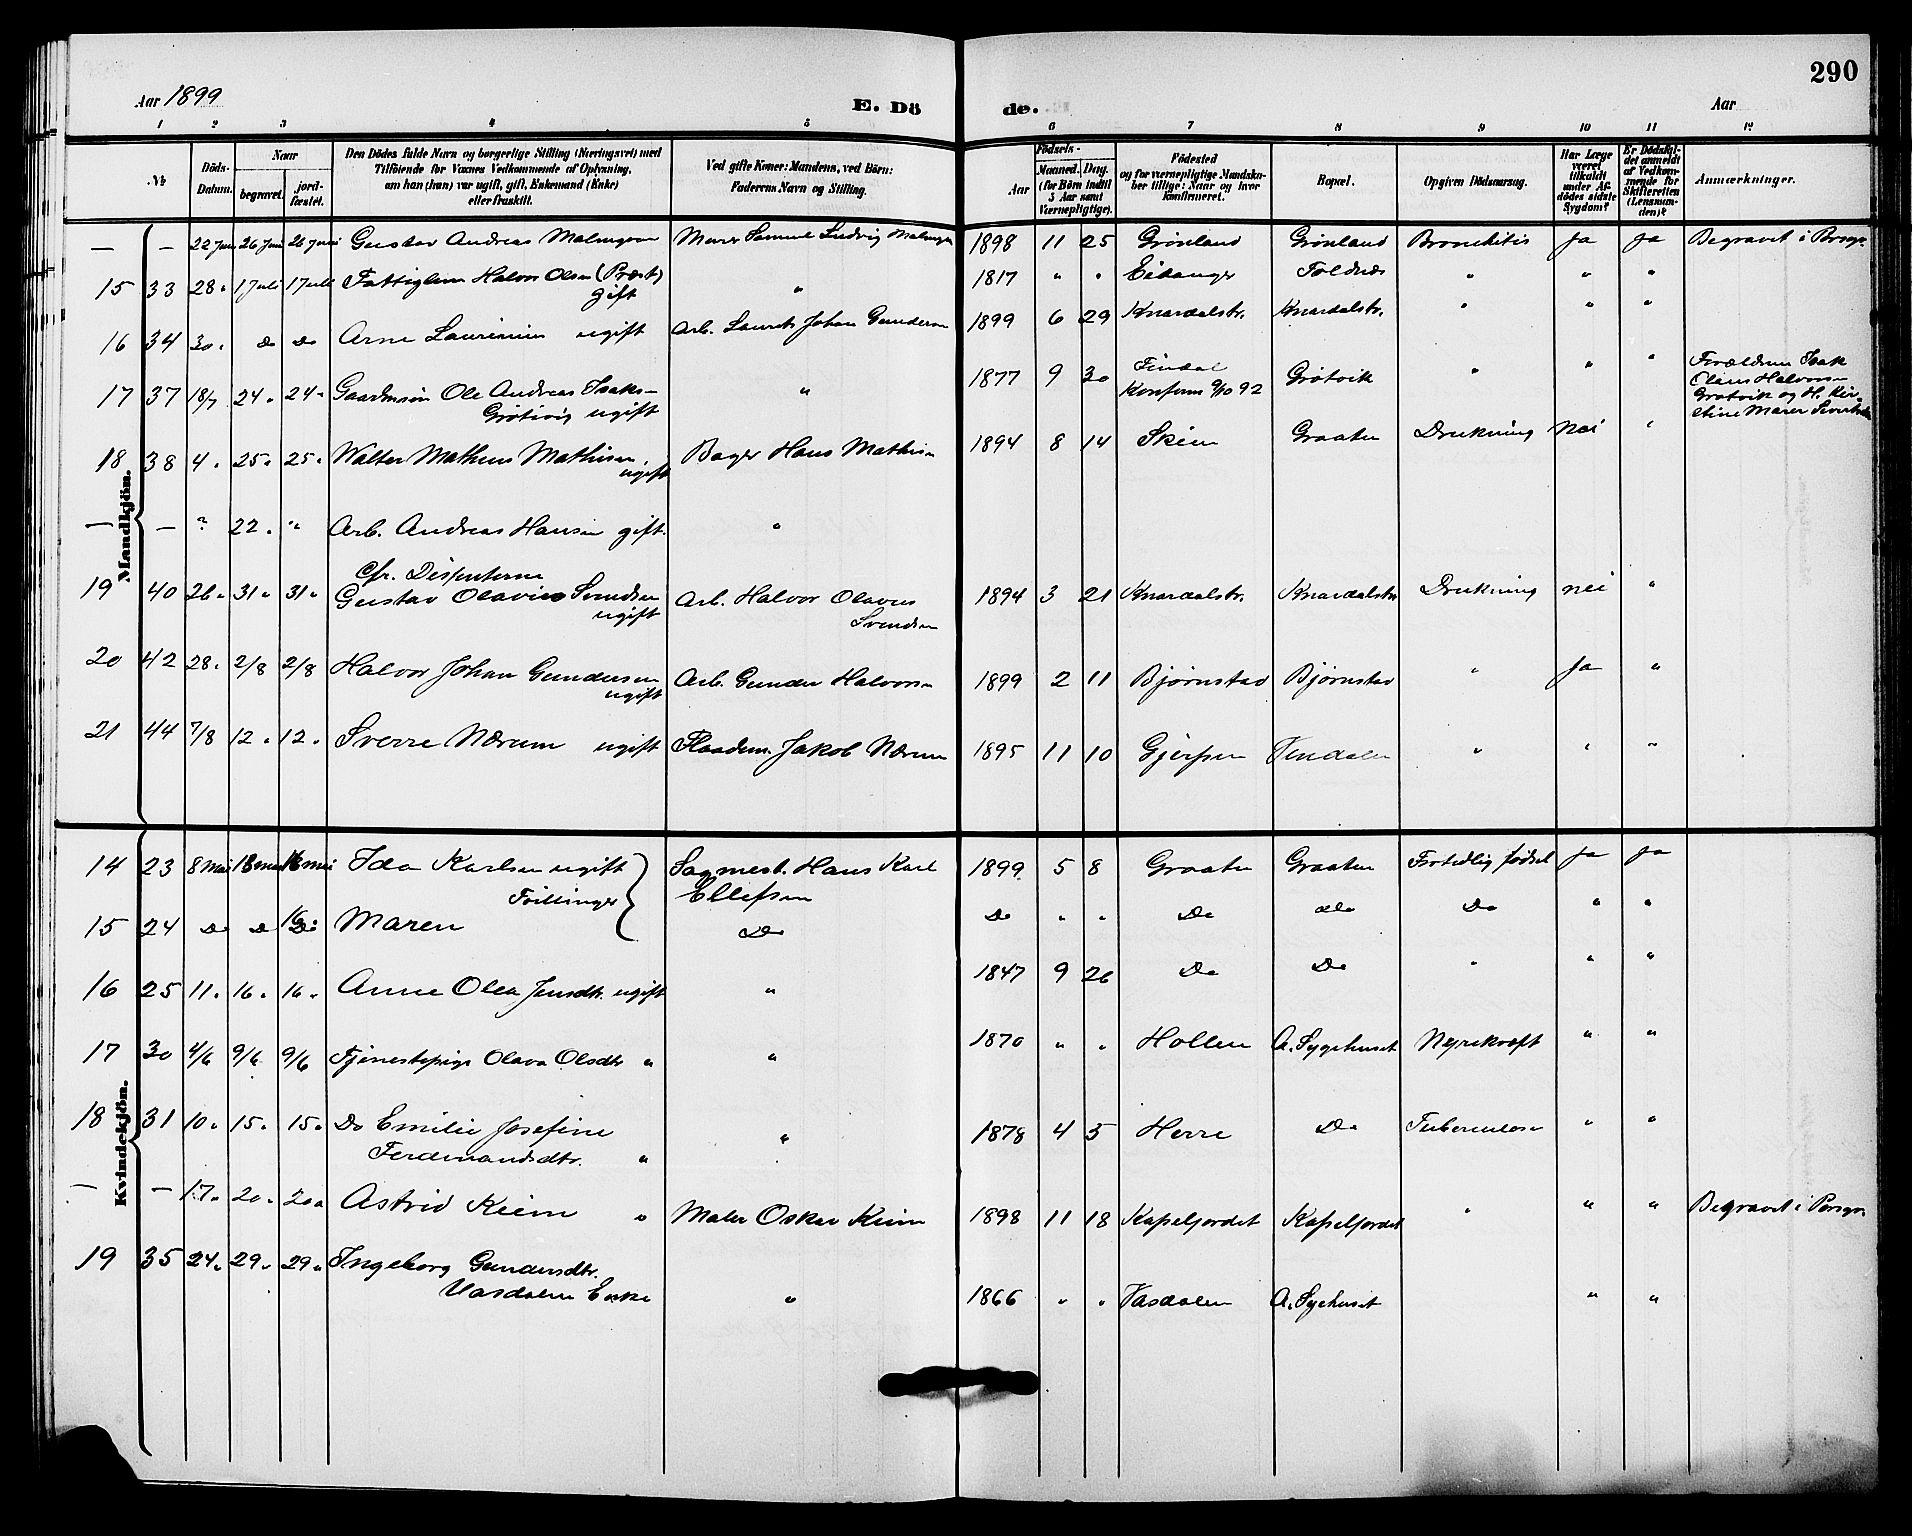 Aar 1899
E. Dö
de.
Aar
290
1 2 3 4 5 6 7 8 9 10 11 12
No
Döds-
Datum.
Naar
begravet.
jord-
fæstet.
Den Dödes fulde Navn og borgerlige Stilling (Næringsvei) med
Tilföiende for Voxnes Vedkommende af Oplysning,
om han (hun) var ugift, gift, Enkemand (Enke)
eller fraskilt.
Ved gifte Koner: Mandens, ved Börn:
Faderens Navn og Stilling.
Födsels-
Aar
Maaned. Dag.
(for Börn indtil
5 Aar samt
Værnepligtige).
Födested
og for værnepligtige Mandska-
ber tillige: Naar og hvor
konfirmeret.
Bopæl.
Opgiven Dödsaarsag.
Har Læge
været
tilkaldt
under Af-
dödes sidste
Sygdom?
Er Dödsfal-
det anmeldt
af Vedkom-
mende for
Skifteretten
(Lensman-
den)?
Anmærkninger.
Mandkjön.
— — 22 Juni 26 Juni 26 Juni Gustav Andreas Malmgren Murer Samuel Ludvig Malmgren 1898 11 25 Grönland Grönland Bronchitis Ja Ja Begravet i Porsgr.
15 33 28 " 1 Juli 1 Juli Fattiglem Halvor Olsen (Præst) " 1817 " " Eidanger Toldnæs " " "
gift
16 34 30 " Do Do Arne Laurinius ugift Arb. Laurits Johan Gundersen 1899 6 29 Knardalstr. Knardalstr. " " "
17 37 18/7 24 " 24 " Gaardmsön Ole Andreas Isaks- " 1877 9 30 Findal Grötvik " " " Forældrene Isak
Grötvig ugift Konfirm 9/10 92 Claus Halvorsen
Grotvik og H. Kir-
stine Maren
18 38 4 " 25 " 25 " Walter Matheus Mathisen Bager Hans Mathisen 1894 8 14 Skien Graaten Drukning Nei "
ugift
— — " 22 " " Arb. Andreas Hansen gift. "
cfr. Disenterne
19 40 26 " 31 " 31 " Gustav Olavius Svendsen Arb. Halvor Olavus 1894 3 21 Knardalstr. Knardalstr Drukning nei "
ugift Svendsen
20 42 28 " 2/8 2/8 Halvor Johan Gundersen Arb. Gunder Halvorsen 1899 2 11 Björnstad Björnstad " Ja "
ugift
21 44 7/8 12 " 12 " Sverre Nærum ugift Jakob Nærum 1895 11 10 Gjerpen " " "
Kvindekjön.
14 23 8 Mai 18 mai 16 mai Ida Karlsen ugift Sagmest. Hans Karl 1899 5 8 Graaten Graaten Fortidlig födsel Ja Ja
Tvillinger Ellefsen
15 24 Do Do 16 Do Maren Do Do " " Do do Do " "
16 25 11 " 16 " 16 " Anne Olea Jensdtr. ugift " 1847 9 26 Do Do " " "
17 30 4/6 9/6 9/6 Tjenestepige Olava Olsdtr " " 1870 " " Hollen A. Sygehuset Nyrekræft " "
18 31 10 " 15 " 15 " Do Emilie Josefine " 1878 4 5 Herre Do Tuberculose " "
Ferdinandsdtr. "
— — 17 " 20 " 20 " Astrid Keim " Maler Oskar Keim 1898 11 18 Kapelfjordet Kapelfjordet " " " Begravet i Porsgr.
19 35 24 " 29 " 29 " Ingeborg Gundersdtr.
Vasdalen Enke " 1866 " " Vasdalen A. Sygehuset " "